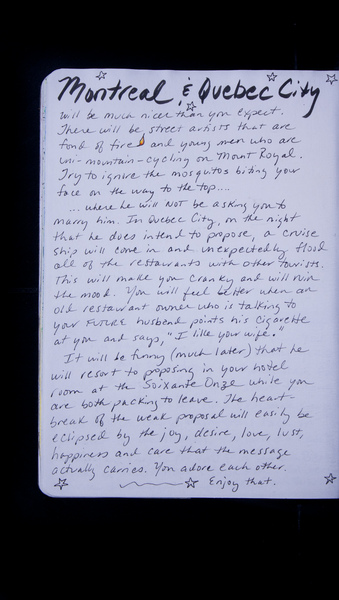 Montreal & Quebec City
will be much nicer than you expect.
There will be street artists that are
fond of fire and young men who are
uni-mountain-cycling on Mount Royal.
Try to ignore the mosquitos biting your
face on the way to the top....
... where he will NOT be asking you to
marry him. In Quebec City, on the night
that he does intend to propose, a cruise
ship will come in and unexpectedly flood
all of the restaurants with other tourists.
This will make you cranky and will ruin
the mood. You will feel better when an
old restaurant owner who is talking to
your FUTURE husband points his cigarette
at you and says, "I like your wife."
It will be funny (much later) that he
will resort to proposing in your hotel
room at the Soixante Onze while you
are both packing to leave. The heart-
break of the weak proposal will easily be
eclipsed by the joy, desire, love, lust,
happiness and care that the message
actually carries. You adore each other.
Enjoy that.